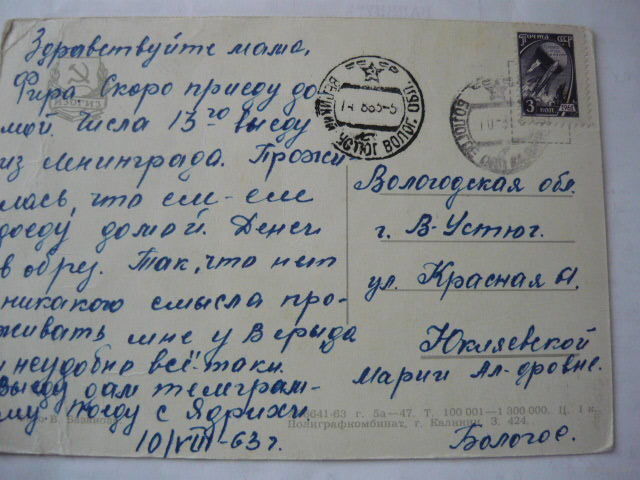 Здравствуйте мама,
Фира. Скоро приеду до
мой. Числа 13го выеду
из Ленинграда. Прожи
лась, что еле-еле
доеду домой. Денег
в обрез. Так, что нет
никакого смысла про-
живать мне у В
и неудобно всё-таки.
Выеду дам телеграм-
му Поеду с
10/VIII-63 г.
ПОЧТА СССР
3 КОП
1961
УСТЮГ ВОЛОГ. ОБЛ
Вологодская обл.
г. В-Устюг.
ул. Красная 61.
Юкляевской
Марии Ал-дровне.
641-63 г. 5а—47. Т. 100 001—1 300 000. Ц. 1 к.
Полиграфкомбинат, г. Калинин, З. 424.
Бологое.